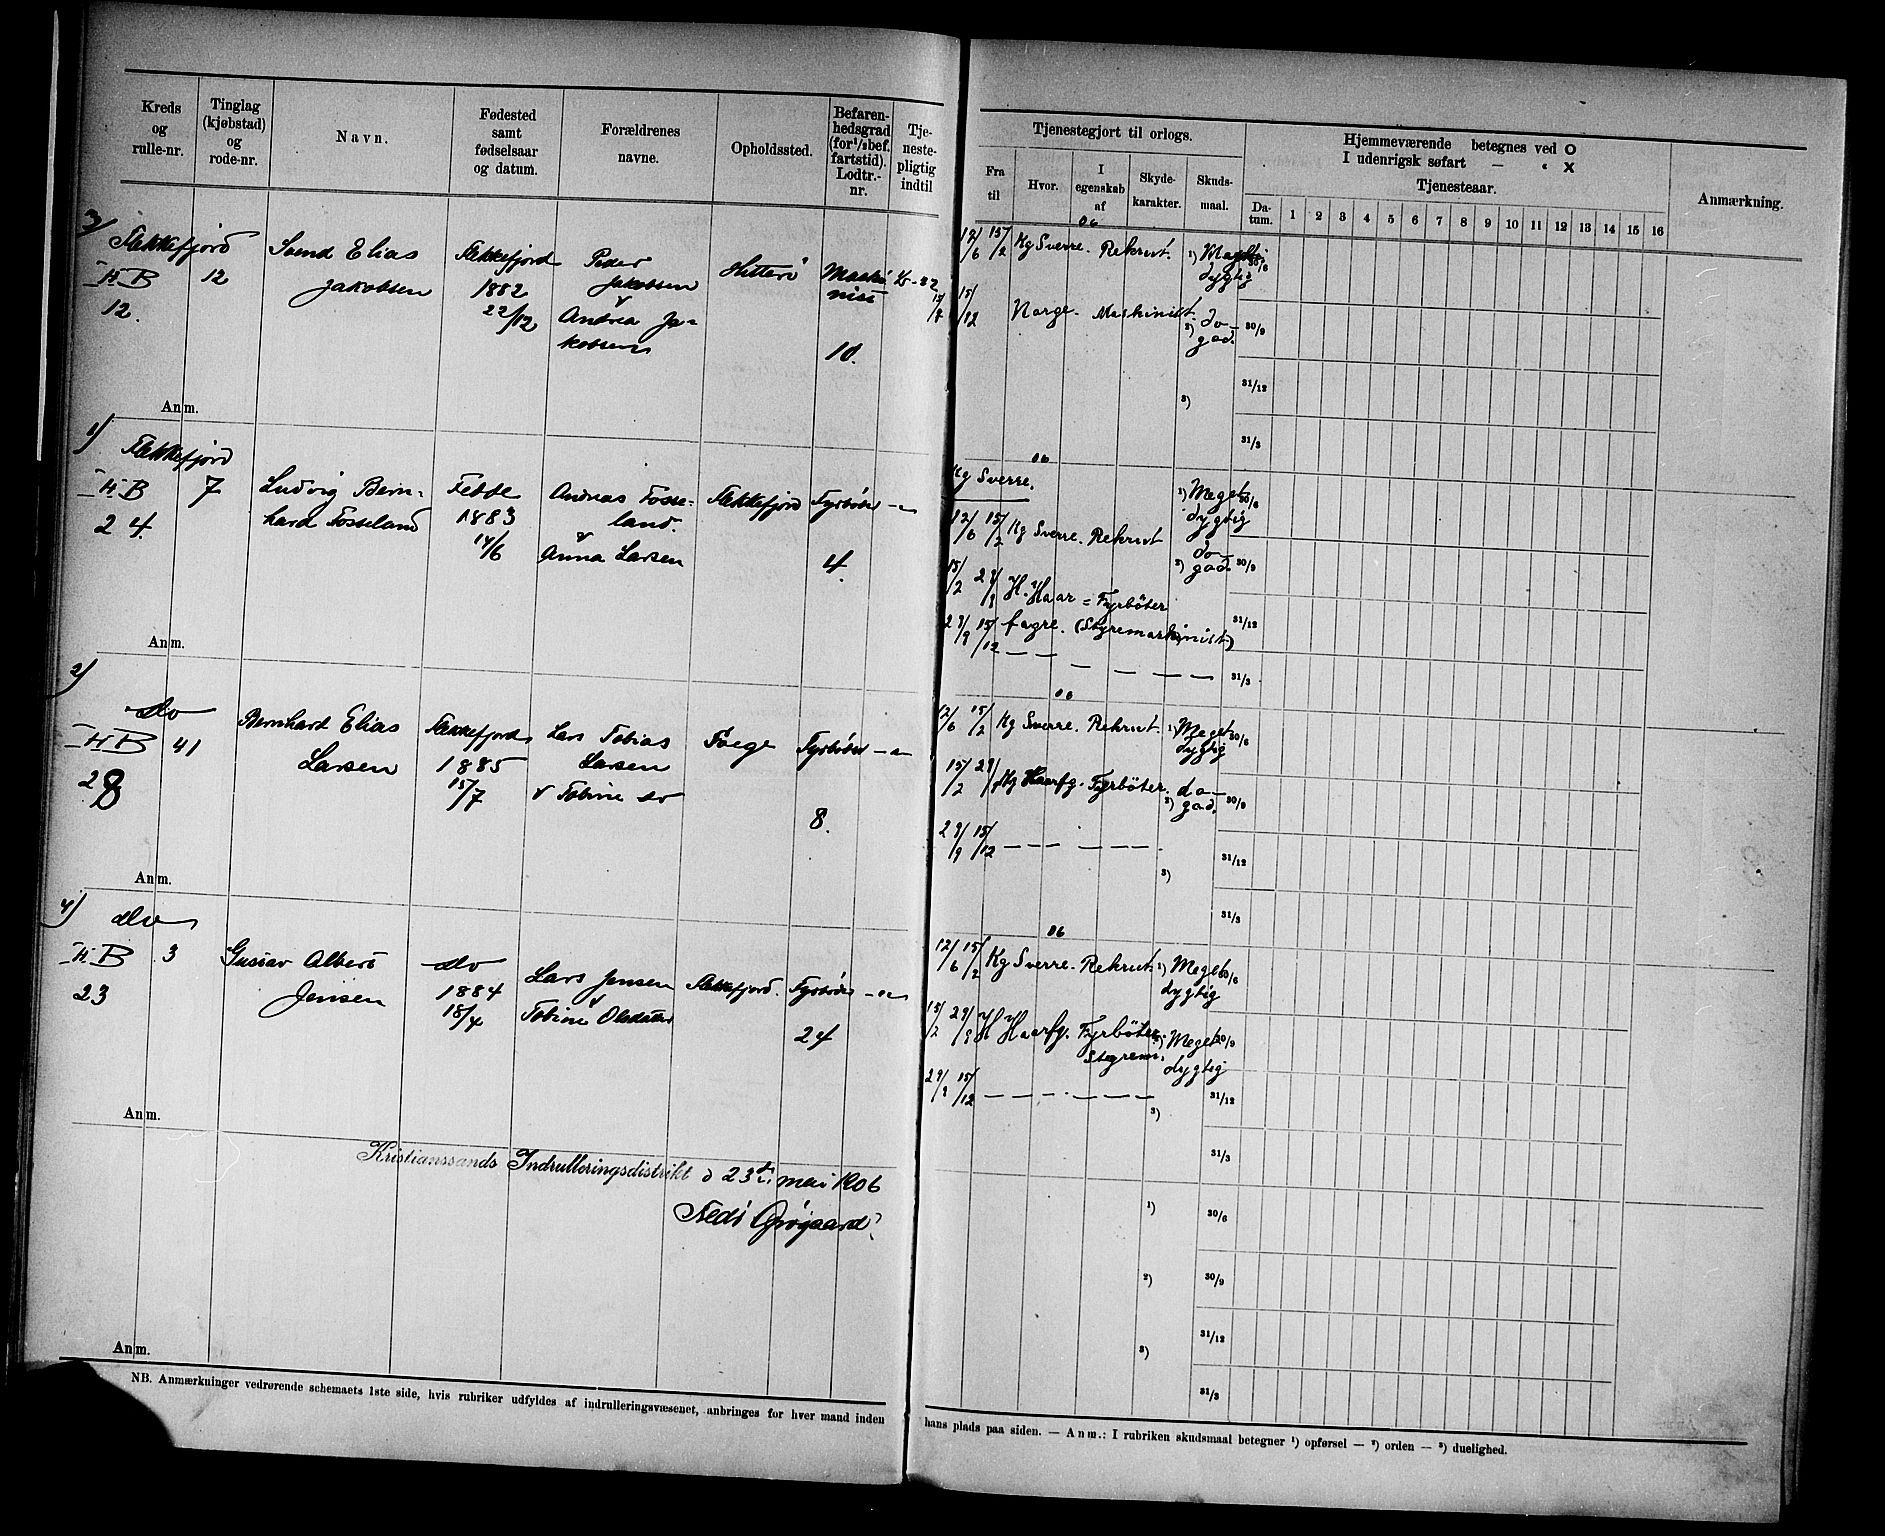 Kreds og rulle-nr.
Tinglag (kjøbstad) og rode-nr.
Navn.
Fødested samt fødselsaar og datum.
Forældrenes navne.
Opholdssted.
Befarenhedsgrad (for 1/2bef. fartstid). Lodtr.-nr.
Tjenestepligtig indtil
Tjenestegjort til orlogs.
Fra til
Hvor.
I egenskab af
Skydekarakter.
Skudsmaal.
Hjemmeværende betegnes ved O
I udenrigsk søfart — " X
Tjenesteaar.
Datum.
1 2 3 4 5 6 7 8 9 10 11 12 13 14 15 16
Anmærkning.
3)
Flekkefjord
H B 12
12.
Svend Elias
Jakobsen
Flekkefjord
1882
22/12
Peder
Jakobsen
Andrea Ja-
kobsen
Hitterö
Maski
nist
10.
06
12/6 15/2 Kg Sverre. Rekrut. 1) Meget 30/6
dygtig
15/2 15/12 Norge. Maskinist. 2) do 30/9
god.
3) 31/12
31/3
Anm.
1)
Flekkefjord
H B 7
24.
Ludvig Bern-
hard Fosseland
Fedde
1883
14/6
Andreas Fosse-
land.
Anna Larsen
Flekkefjord
Fyrböter
4.
06
Kg Sverre.
12/6 15/2 Kg Sverre. Rekrut
1) Meget 30/6
dygtig
2) do god. 30/9
15/2 29/9 H. Haar = Fyrböter
29/9 15/12 fagre. (Styremaskinist) 31/12
31/3
Anm.
2)
do
H B 41
28
Bernhard Elias
Larsen
Flekkefjord
1885
15/7
Lars Tobias
Larsen
Tobine do
Fyrböter
8.
06
12/6 15/2 Kg Sverre. Rekrut. 1) Meget 30/6
dygtig
15/2 29/9 Kg Haarfg. Fyrböter. 2) do god. 30/9
29/9 15/12 — — — — —
3) 31/12
31/3
Anm.
4)
do
H B 3
23
Gustav Albert
Jensen
do
1884
18/4
Lars Jensen
Tobine Olsdatter
Flekkefjord.
Fyrböter
24
06
12/6 15/2 Kg Sverre. Rekrut. 1) Meget 30/6
dygtig
15/2 29/9 H Haarfg. Fyrböter. 2) Meget 30/9
Styrem. dygtig
29/9 15/12 — — — — — —
3) 31/12
31/3
Anm.
Kristianssands Indrulleringsdistrikt d 23de mai 1906
Grögaard
1) 30/6
2) 30/9
31/12
3)
31/3
Anm.
NB. Anmærkninger vedrørende schemaets 1ste side, hvis rubriker udfyldes af indrulleringsvæsenet, anbringes for hver mand inden hans plads paa siden. — Anm.: I rubriken skudsmaal betegner 1) opførsel — 2) orden — 3) duelighed.